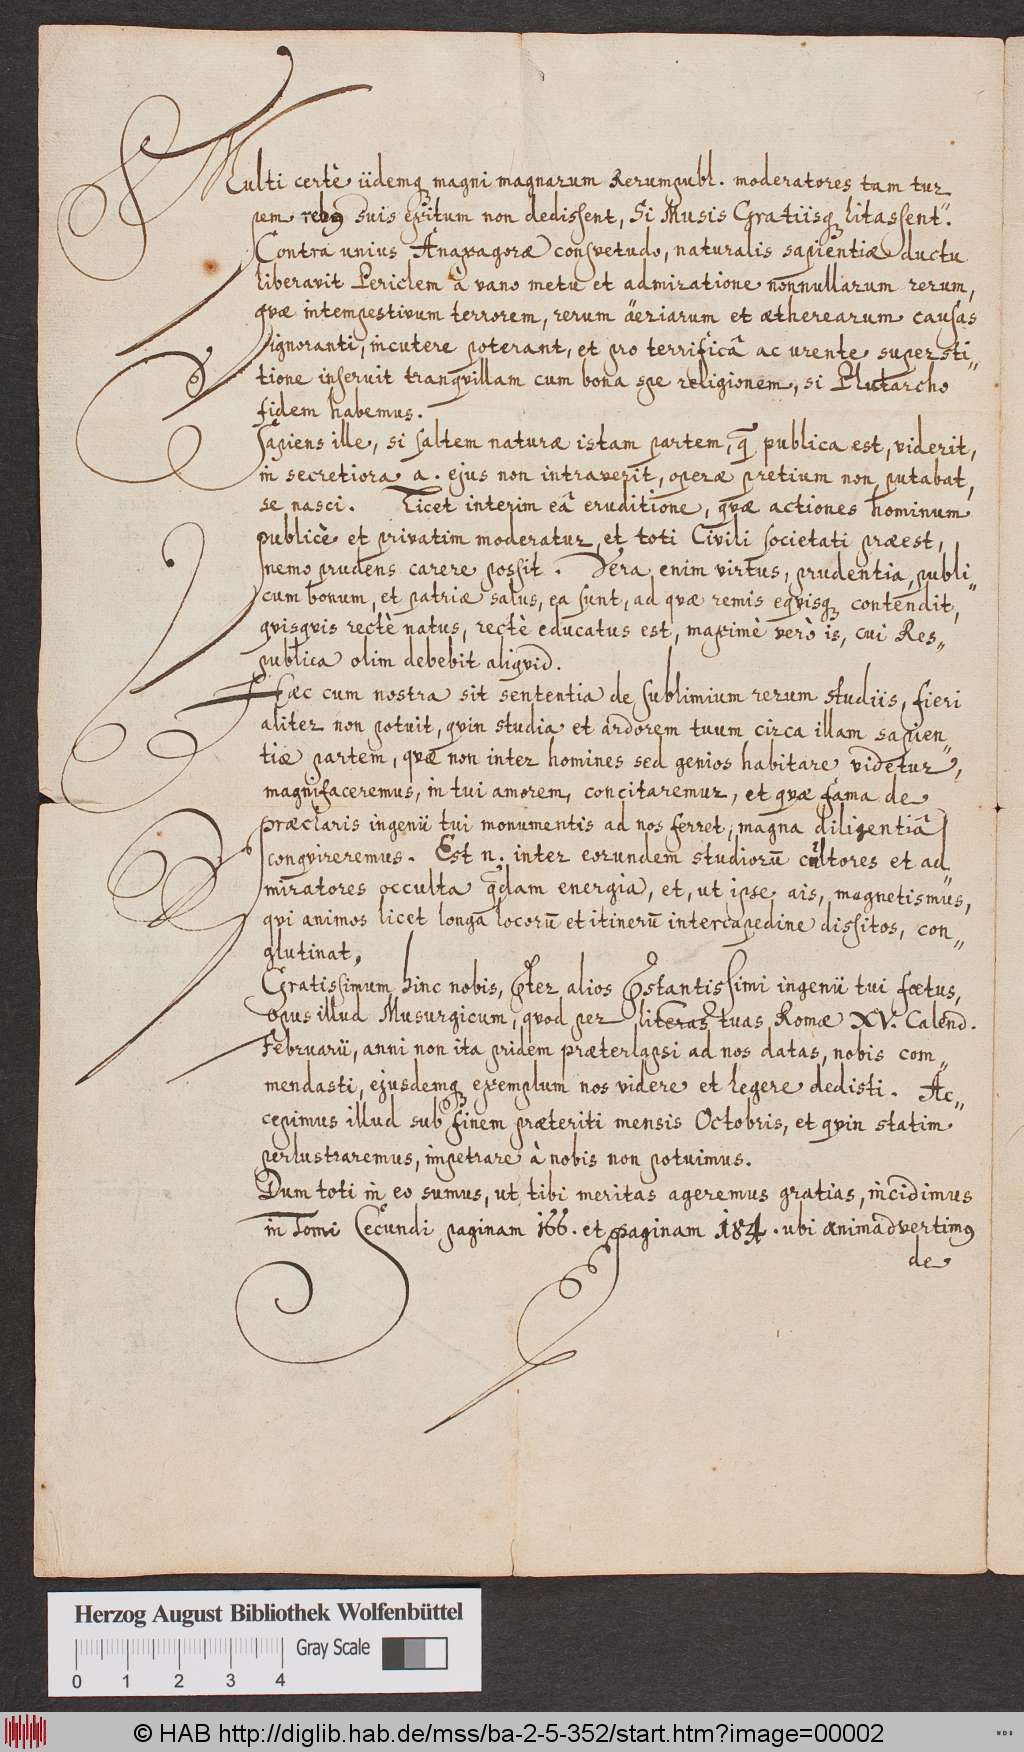 Multi certè iidemq; magni magnarum Rerumpubl. moderatores tam tur
pem rebus suis exitum non dedissent, Si Musis Gratiisq; litassent.
Contrà unius Anaxagoræ consvetudo, naturalis sapientiæ ductu
liberavit Periclem à vano metu et admiratione nonnullarum rerum,
qvæ intempestivum terrorem, rerum äeriarum et ætherearum causas
ignoranti, incutere poterant, et pro terrificâ ac urente supersti„
tione inseruit tranqvillam cum bona spe religionem, si Plutarcho
fidem habemus.
Sapiens ille, si saltem naturæ istam partem, q̃ publica est, viderit,
in secretiora a. ejus non intraverit, operæ pretium non putabat,
se nasci. Licet interim eâ eruditione, qvæ actiones hominum
publicè et privatim moderatur et toti Civili societati præest,
nemo prudens carere possit. Vera enim virtus, prudentia, publi„
cum bonum, et patriæ salus, ea sunt, ad qvæ remis eqvisq; contendit,
qvisqvis rectè natus, rectè educatus est, maximè verò is, cui Res„
publica olim debebit aliqvid.
Hæc cum nostra sit sententia de sublimium rerum studiis, fieri
aliter non potuit, qvin studia et ardorem tuum circa illam sapien„
tiæ partem, qvæ non inter homines sed genios habitare videtur,
magnifaceremus, in tui amorem, concitaremur, et qvæ fama de
præclaris ingenii tui monumentis ad nos ferret, magna diligentiâ
conqvireremus. Est n. inter eorundem studiorū cultores et ad
miratores occulta q̃dam energia, et, ut ipse ais, magnetismus,
qvi animos licet longa locorū et itinerū intercapedine dissitos, con„
glutinat.
Gratissimum hinc nobis, p̃ter alios p̃stantissimi ingenii tui fœtus,
opus illud Musurgicum, quod per literas tuas Romæ XV. Calend.
Februarii, anni non ita pridem præterlapsi ad nos datas, nobis com„
mendasti, ejusdemq; exemplum nos videre et legere dedisti. Ac„
cepimus illud sub finem præteriti mensis Octobris, et qvin statim
perlustraremus, impetrare à nobis non potuimus.
Dum toti in eo sumus, ut tibi meritas ageremus gratias, incidimus
in Tomi Secundi paginam 166. et paginam 184. ubi animadvertimus
de
Herzog August Bibliothek Wolfenbüttel
Gray Scale
0 1 2 3 4
© HAB http://diglib.hab.de/mss/ba-2-5-352/start.htm?image=00002